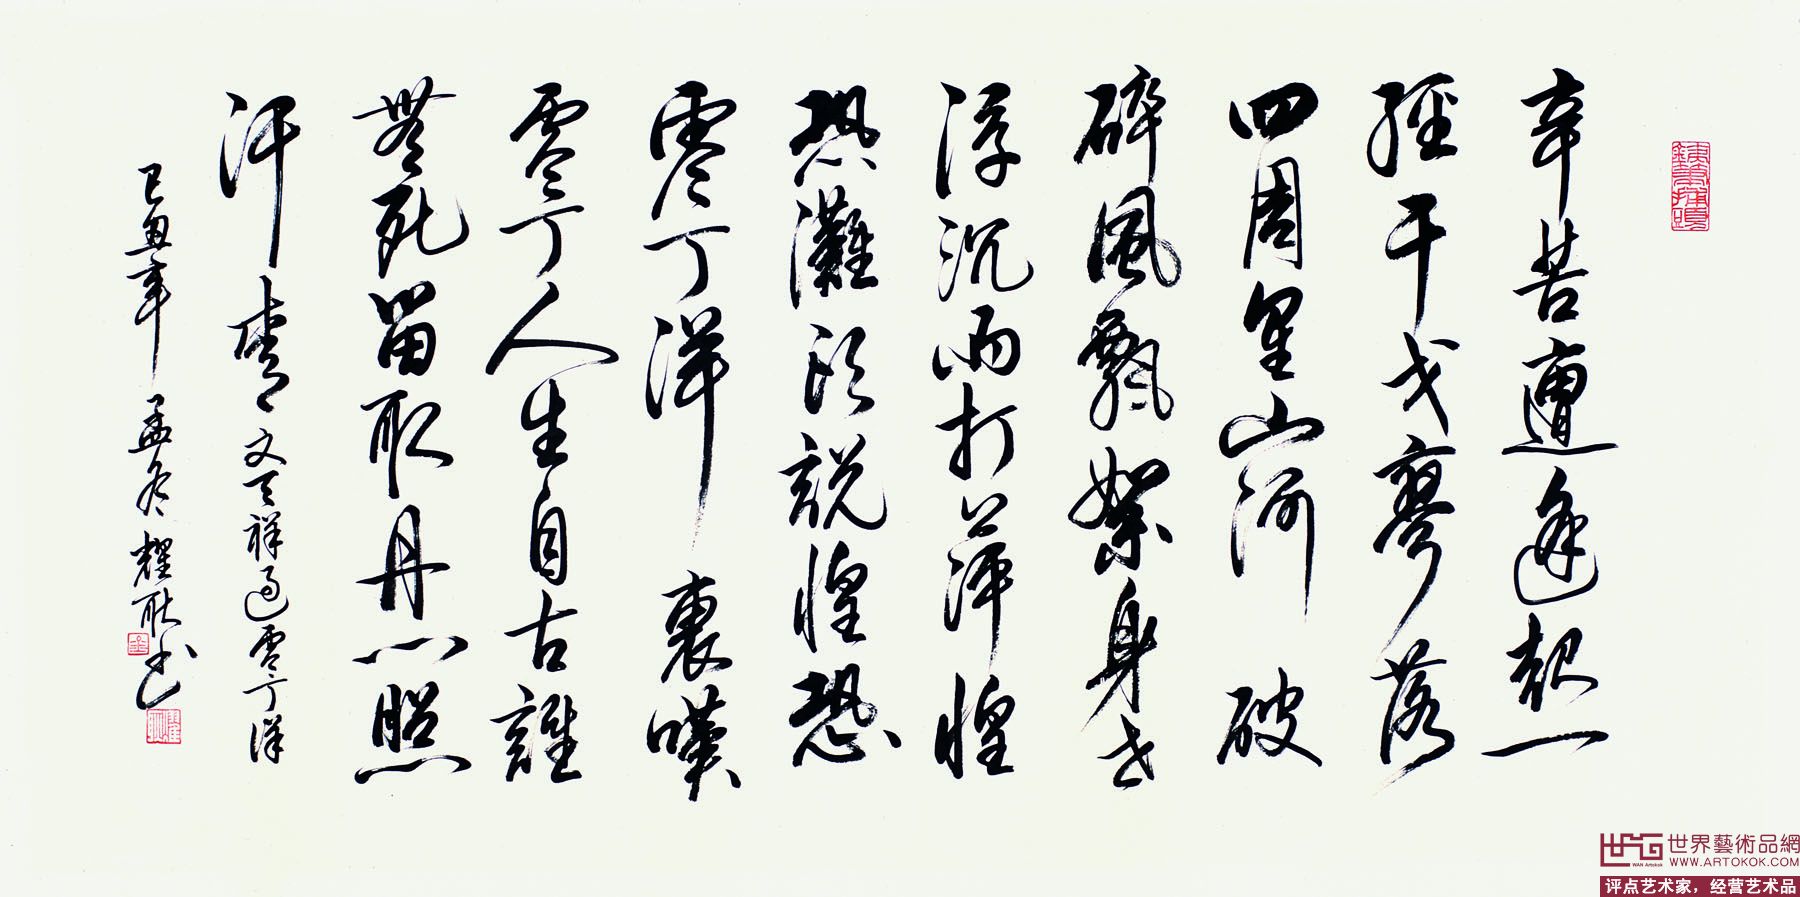 辛苦遭逢起一
經干戈寥落
四周星山河破
碎風飄絮身世
浮沉雨打萍惶
恐灘頭說惶恐
零丁洋裏嘆
零丁人生自古誰
無死留取丹心照
汗青 文天祥過零丁洋
己丑年孟冬耀耿书
世界藝術品網
WAN Artokok
WWW.ARTOKOK.COM
评点艺术家，经营艺术品